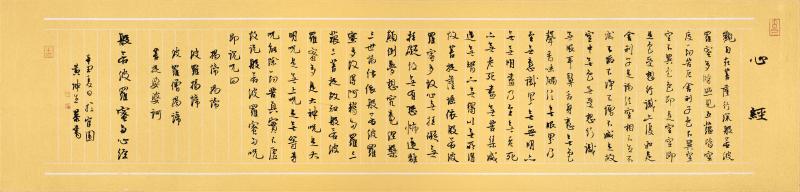 心經
觀自在菩薩行深般若波
羅蜜多時照見五蘊皆空
度一切苦厄舍利子色不異空
空不異色色即是空空即
是色受想行識亦復如是
舍利子是諸法空相不生不
滅不垢不淨不增不減是故
空中無色無受想行識
無眼耳鼻舌身意無色
聲香味觸法無眼界乃
至無意識界無無明亦
無無明盡乃至無老死
亦無老死盡無苦集滅
道無智亦無得以無所得
故菩提薩埵依般若波
羅蜜多故心無罣礙無
罣礙故無有恐怖遠離
顛倒夢想究竟涅槃
三世諸佛依般若波羅
蜜多故得阿耨多羅三
藐三菩提故知般若波
羅蜜多是大神咒是大
明咒是無上咒是無等等
咒能除一切苦真實不虛
故說般若波羅蜜多咒
即說咒曰
揭諦揭諦
波羅揭諦
波羅僧揭諦
菩提娑婆訶
般若波羅蜜多心經
辛丑夏日於園
黃